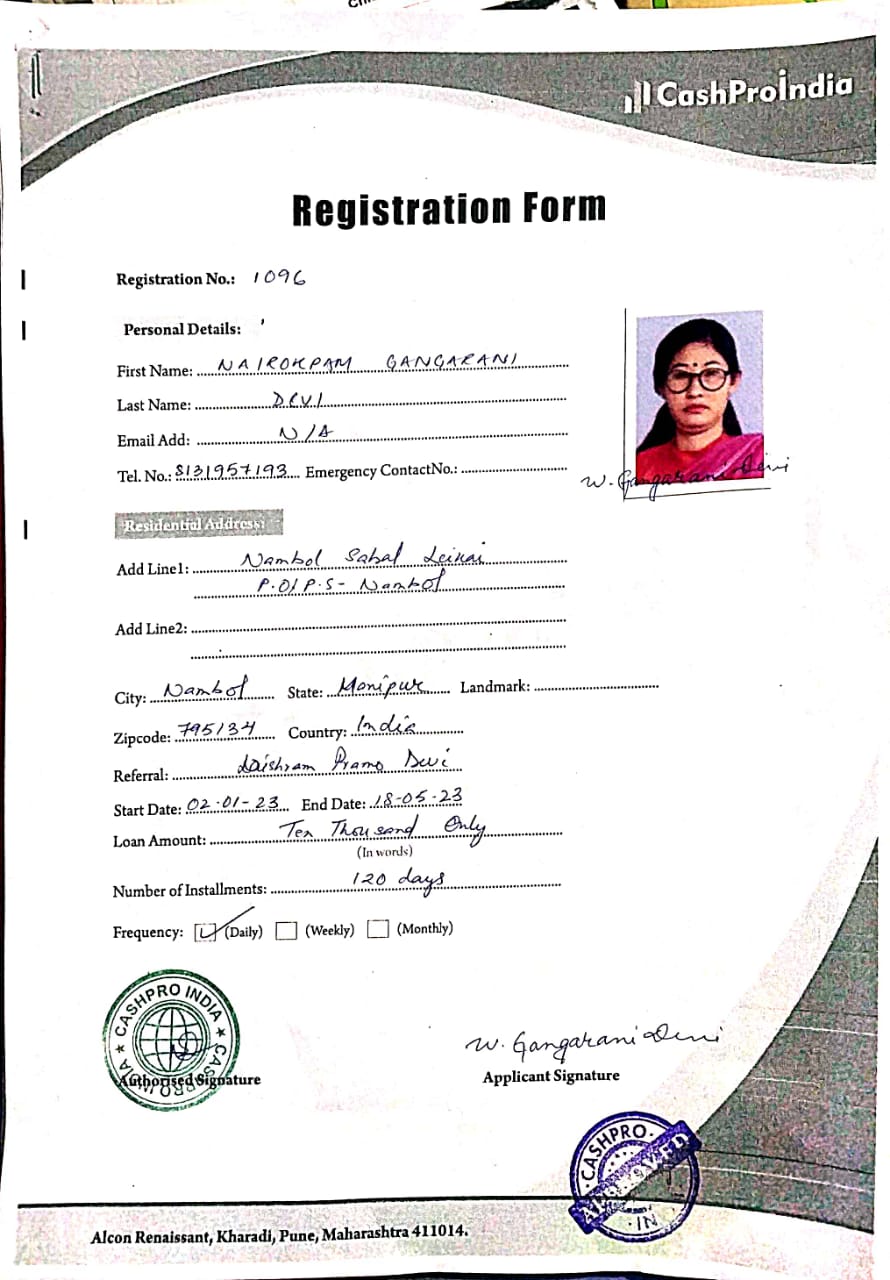 CashProIndia
Registration Form
Registration No.: 1096
Personal Details:
First Name: NAIROKPAM GANGARANI
Last Name: DEVI
Email Add: N/A
Tel. No.: 8131957193 Emergency ContactNo.:
W. Gangarani Devi
Residential Address:
Add Line1: Nambol Sabal Leikai
P.O/P.S- Nambol
Add Line2:
City: Nambol State: Manipur Landmark:
Zipcode: 795134 Country: India
Referral: Laishram Pramo Devi
Start Date: 02-01-23 End Date: 18-05-23
Loan Amount: Ten Thousand Only
(In words)
Number of Installments: 120 days
Frequency: (Daily) (Weekly) (Monthly)
CASHPRO INDIA ★ CASHPRO INDIA ★
Authorised Signature
W. Gangarani Devi
Applicant Signature
CASHPRO
IN
Alcon Renaissant, Kharadi, Pune, Maharashtra 411014.